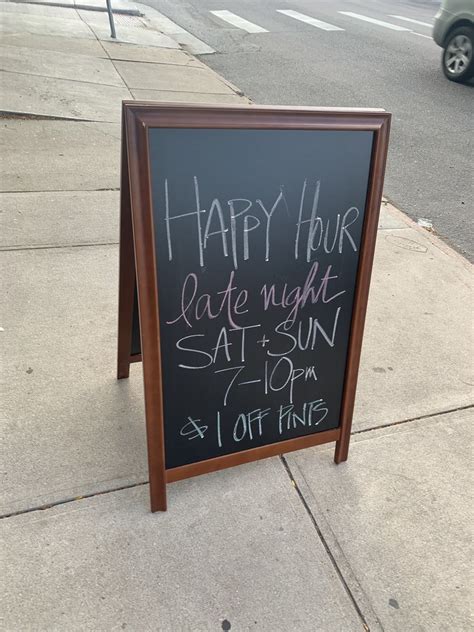 HAPPY HOUR
late night
SAT + SUN
7-10pm
$1 OFF PINTS